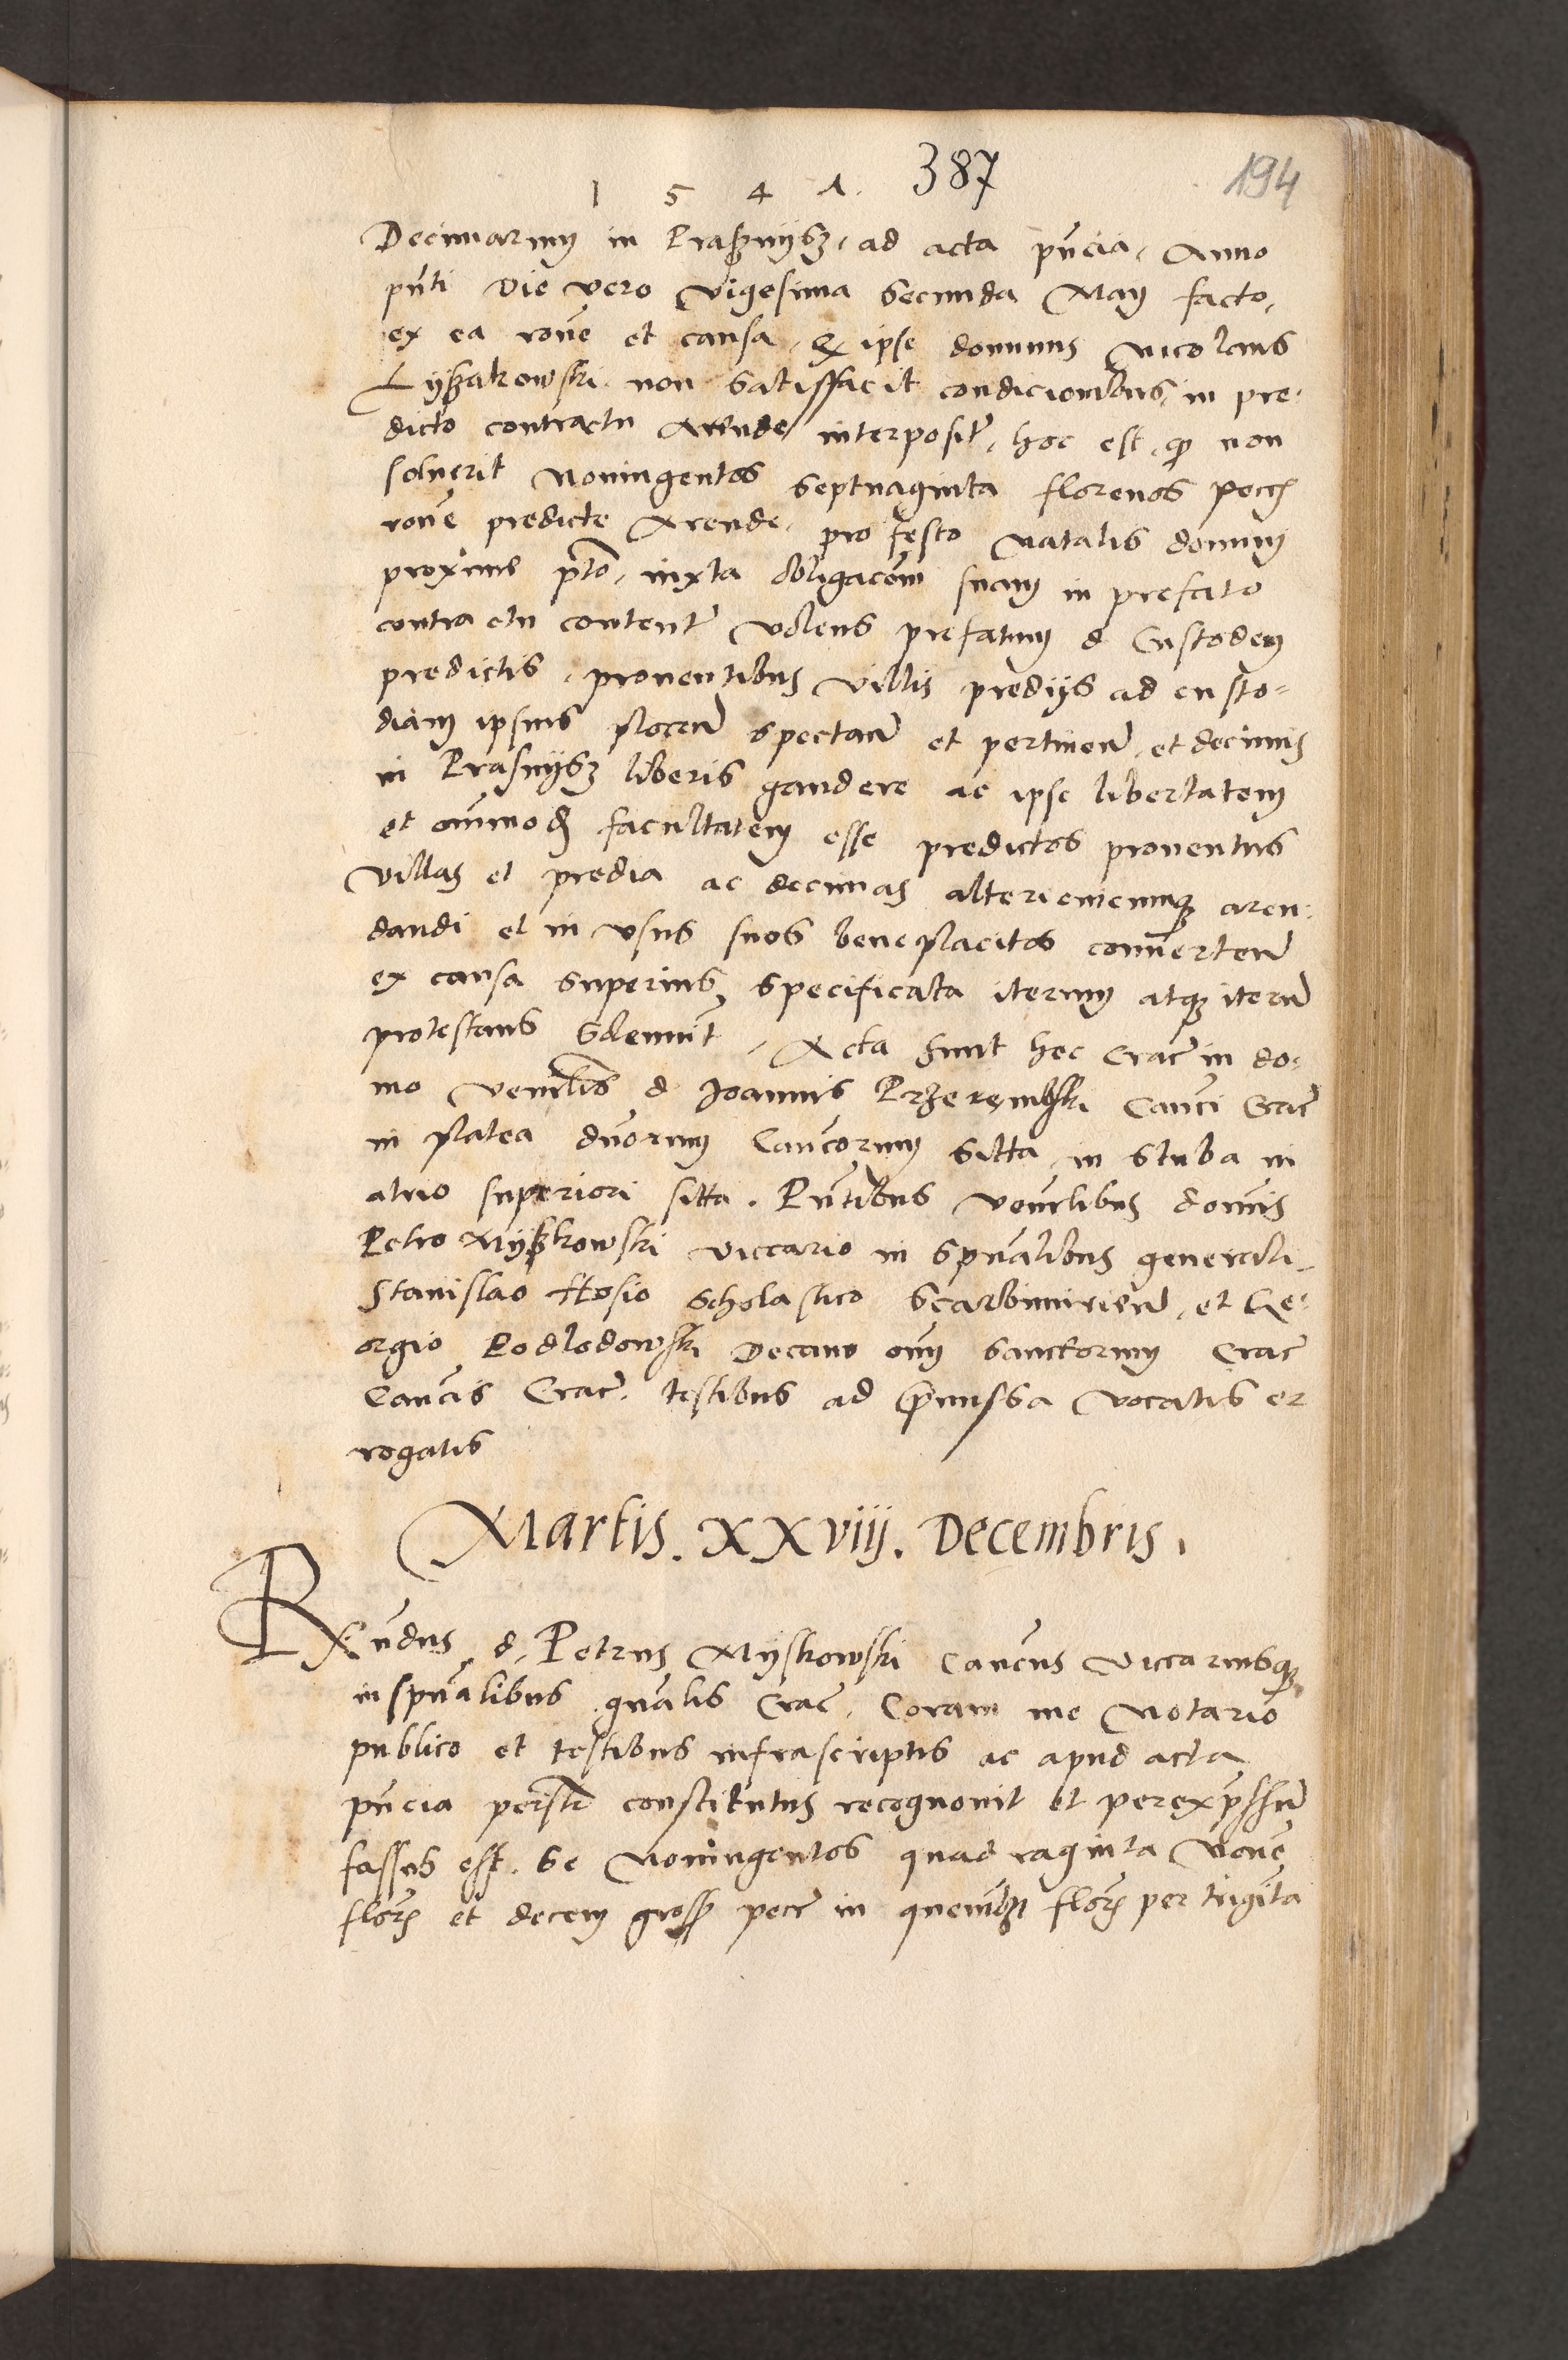 1 5 4 1. 387 194
Decimarum in Praßnysz, ad acta pñcia, Anno
pñti die vero vigesima secunda Maij facto,
ex ea rone et causa, q ipse dominus Nicolaus
Lyßakowski non satisfacit condicionibus, in pre-
dicto contractu Arende interposit, hoc est, q non
soluerit noningentos septuaginta florenos pecc
rone predicte Arende, pro festo natalis domini
proxime pto, iuxta obligacom suam in prefato
contractu content volens prefatum d Custodem
predictis, prouentibus villis predijs ad custo-
diam ipsius plocen spectan et pertinen, et decimis
in Prasnysz liberis gaudere ac ipse libertatem
et omnimod facultatem esse predictos prouentus
villas et predia ac decimas alteri cuicumq aren-
dandi et in vsus suos beneplacitos conuerten
ex causa superius specificata iterum atq iterum
protestans solemnit, Acta sunt hec Crac in do-
mo venerlis d Joannis Przerembski Canci Crac
in platea dnorum Cancorum sitta in stuba in
atrio superiori sitta. Pntibus venerlibus domis
Petro Myßkowski viccario in spualibus generali,
Stanislao Hosio Scholastico Scarbimirien, et Ge-
orgio Podlodowski Decano omm sanctorum Crac
Cancis Crac, testibus ad premissa vocatis et
rogatis
Martis. XXviij. Decembris.
Rxndus d. Petrus Myskowski Cancus viccariusq
in spualibus gnalis Crac, Coram me Notario
publico et testibus infrascriptis ac apud acta
pñcia persr constitutus recognouit et per expssum
fassus est, se noningentos quadraginta noue
flors et decem gross pecc in quemlbz flors per triginta